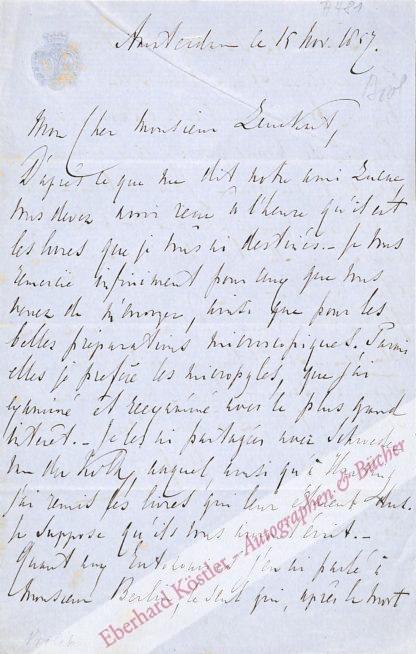 Amsterdam le 15 Nov. 1857.
Mon Cher Monsieur
D'après ce que me dit notre ami
vous devez avoir reçu à l'heure qu'il est
les livres que je vous ai destinés. - Je vous
remercie infiniment pour ceux que vous
venez de m'envoyer, ainsi que pour les
belles préparations microscopiques. Parmi
elles je préfère les micropyles, que j'ai
examiné et réexaminé avec le plus grand
intérêt. - Je les ai partagées avec
van der Kolk, auquel, ainsi qu'à
j'ai remis les livres qui leur étaient
Je suppose qu'ils vous
Quant aux j'en ai parlé à
Monsieur Berlin, le seul qui, après la mort
Eberhard Köstler - Autographen & Bücher